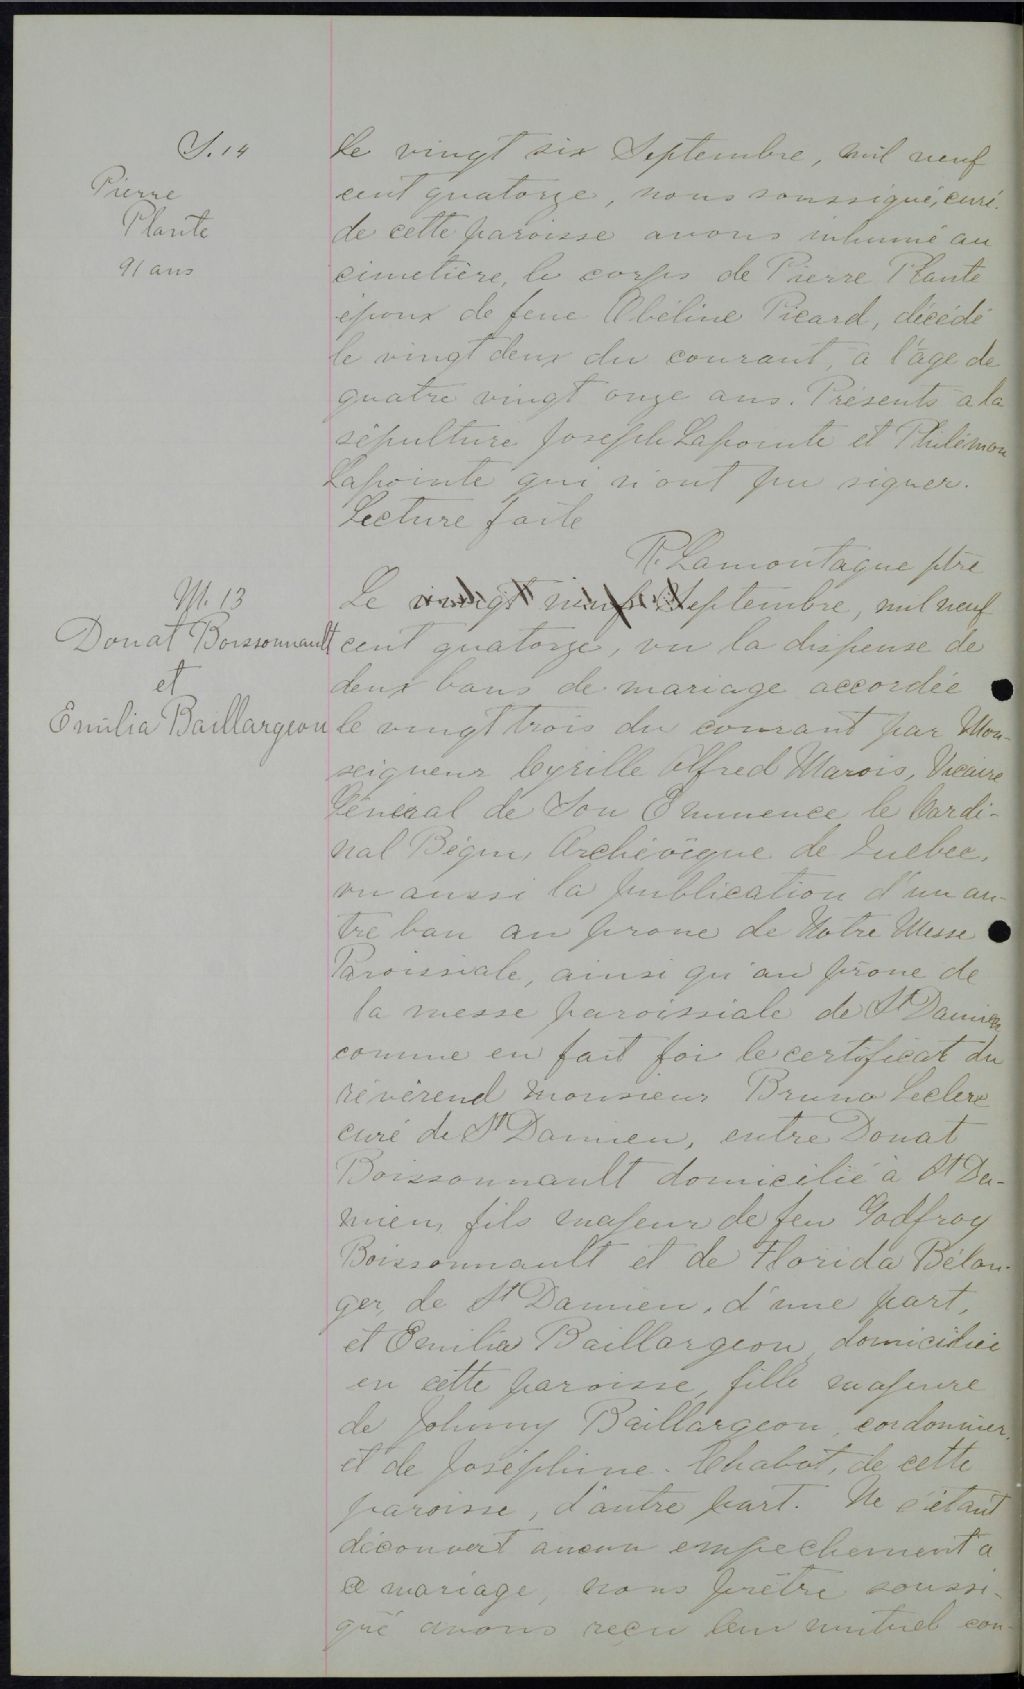 S. 14
Pierre
Plante
91 ans
Le vingt six Septembre, mil neuf
cent quatorze, nous soussigné, curé
de cette paroisse avons inhumé au
cimetière, le corps de Pierre Plante
époux de feue Obéline Picard, décédé
le vingt deux du courant, à l'âge de
quatre vingt onze ans. Présents à la
sépulture Joseph Lapointe et Philémon
Lapointe qui n'ont pu signer.
Lecture faite
R. Lamontagne ptre
M. 13
Donat Boissonnault
et
Emilia Baillargeon
Le vingt neuf Septembre, mil neuf
cent quatorze, vu la dispense de
deux bans de mariage accordée
le vingt trois du courant par Mon-
seigneur Cyrille Alfred Marois, Vicaire
Général de Son Eminence le Cardi-
nal Bégin, Archévêque de Quebec,
vu aussi la publication d'un au-
tre ban au prone de Notre Messe
Paroissiale, ainsi qu'au prône de
la messe paroissiale de St Damien
comme en fait foi le certificat du
révérend monsieur Bruno Leclerc
curé de St Damien, entre Donat
Boissonnault domicilié à St Da-
mien, fils majeur de feu Godfroy
Boissonnault et de Florida Bélan-
ger, de St Damien, d'une part,
et Emilia Baillargeon, domiciliée
en cette paroisse, fille majeure
de Johnny Baillargeon, cordonnier,
et de Joséphine Chabot, de cette
paroisse, d'autre part. Ne s'étant
découvert aucun empechement à
ce mariage, nous prêtre soussi-
gné avons reçu leur mutuel con-